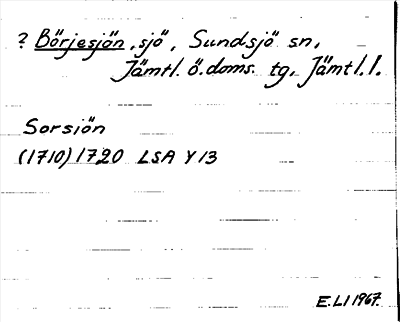 ? Börjesjön, sjö, Sundsjö sn,
Jämtl. ö. doms. tg, Jämtl. l.
Sorsiön
(1710) 1720 LSA Y 13
E.Ll 1967.